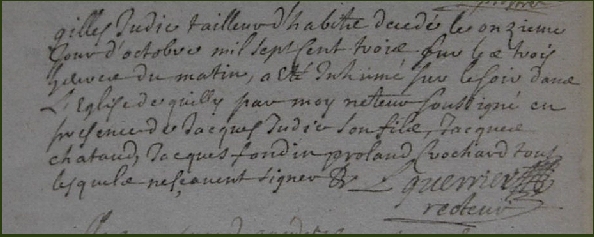 gilles Judic tailleur d'habitz decedé le onzieme
Jour d'octobre mil sept sent troize sur les trois
heures du matin, a eté Inhumé sur le soir dans
L'Eglise de quilly par moy recteur soussigné en
presence de Jacques Judic son fils, Jacques
chataud, Jacques fondin proland Rochard tous
lesquels ne sçavent signer &
L guerrier
recteur